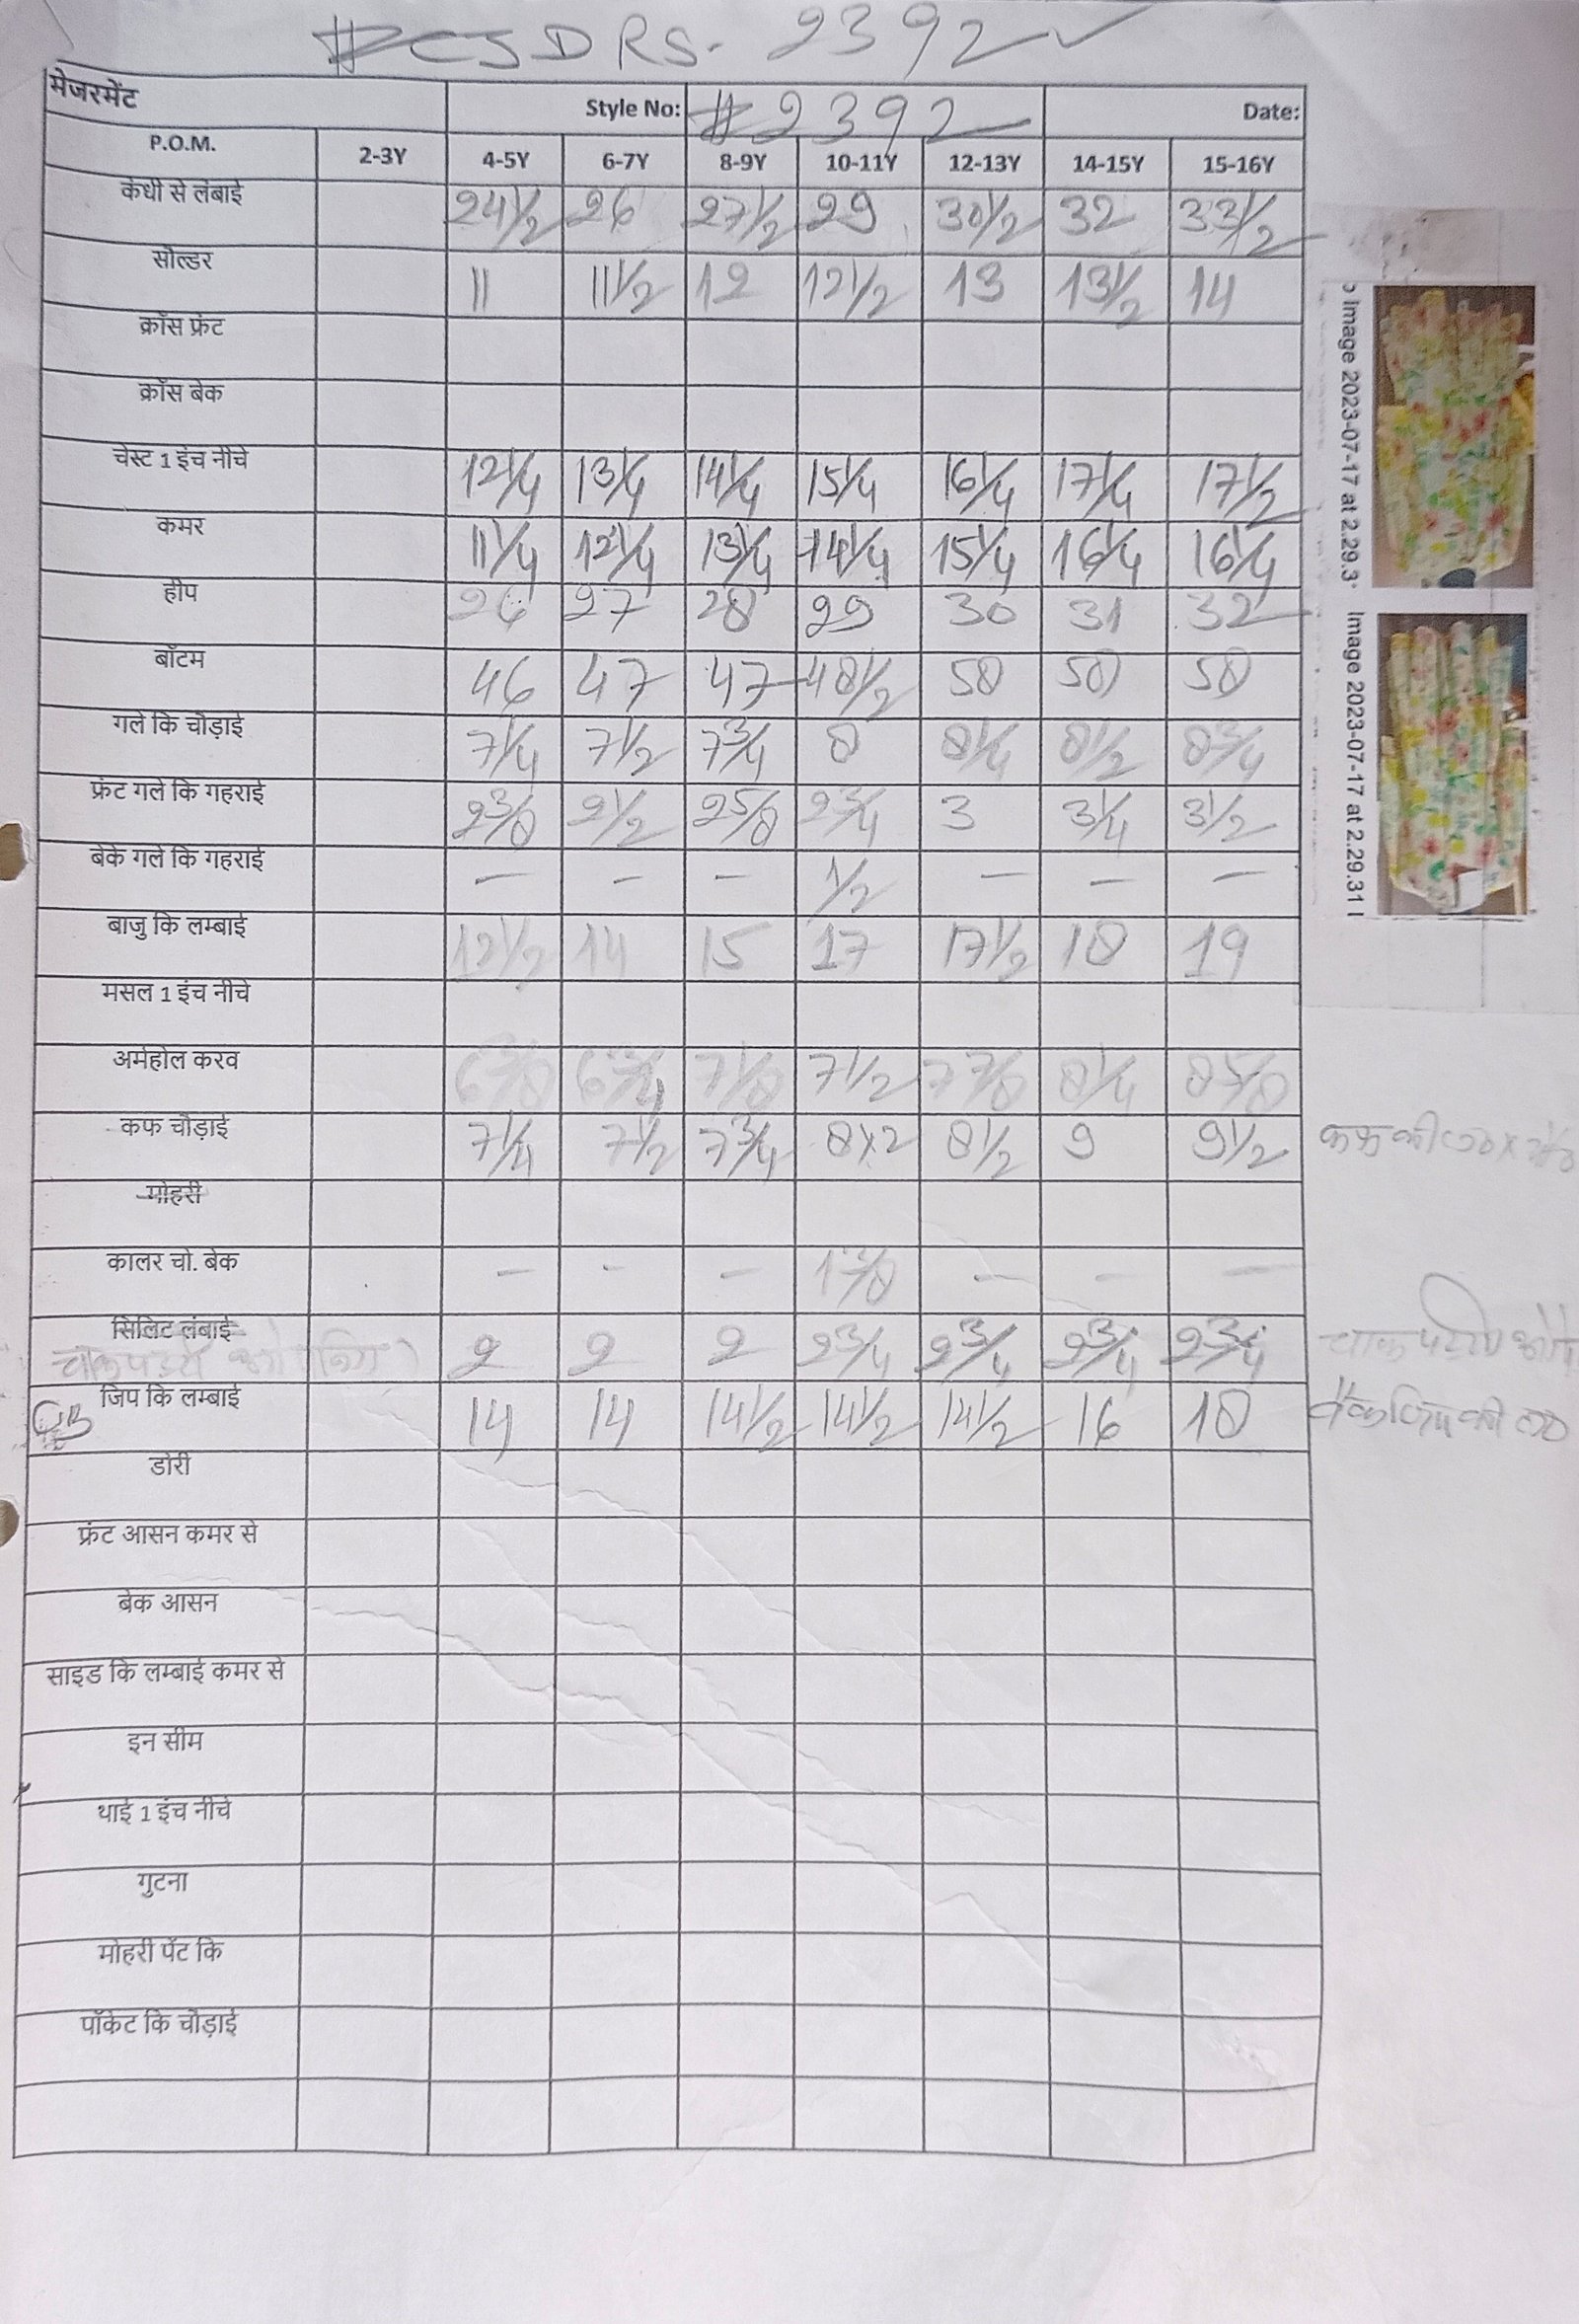 #CSDRS-2392
मेजरमेंट Style No: #2392 Date:
P.O.M. 2-3Y 4-5Y 6-7Y 8-9Y 10-11Y 12-13Y 14-15Y 15-16Y
कंधी से लंबाई 24 1/2 26 27 1/2 29 30 1/2 32 33 1/2
सोल्डर 11 11 1/2 12 12 1/2 13 13 1/2 14
क्रॉस फ्रंट
क्रॉस बेक
चेस्ट 1 इंच नीचे 12 1/4 13 1/4 14 1/4 15 1/4 16 1/4 17 1/4 17 1/2
कमर 11 1/4 12 1/4 13 1/4 14 1/4 15 1/4 16 1/4 16 1/4
हीप 26 27 28 29 30 31 32
बॉटम 46 47 47 48 1/2 50 50 50
गले कि चौड़ाई 7 1/4 7 1/2 7 3/4 8 8 1/4 8 1/2 8 3/4
फ्रंट गले कि गहराई 2 3/8 2 1/2 2 5/8 2 3/4 3 3 1/4 3 1/2
बेके गले कि गहराई – – – 1/2 – – –
बाजु कि लम्बाई 12 1/2 14 15 17 17 1/2 18 19
मसल 1 इंच नीचे
अर्महोल करव 6 3/8 6 3/4 7 1/8 7 1/2 7 7/8 8 1/4 8 5/8
कफ चौड़ाई 7 1/4 7 1/2 7 3/4 8x2 8 1/2 9 9 1/2 कफ की
मोहरी
कालर चो. बेक – – – – – –
सिलिट लंबाई 2 2 2 2 3/4 2 3/4 2 3/4 2 3/4
CB जिप कि लम्बाई 14 14 14 1/2 14 1/2 14 1/2 16 18
डोरी
फ्रंट आसन कमर से
बेक आसन
साइड कि लम्बाई कमर से
इन सीम
थाई 1 इंच नीचे
गुटना
मोहरी पेंट कि
पॉकेट कि चौड़ाई
Image 2023-07-17 at 2.29.3
Image 2023-07-17 at 2.29.31